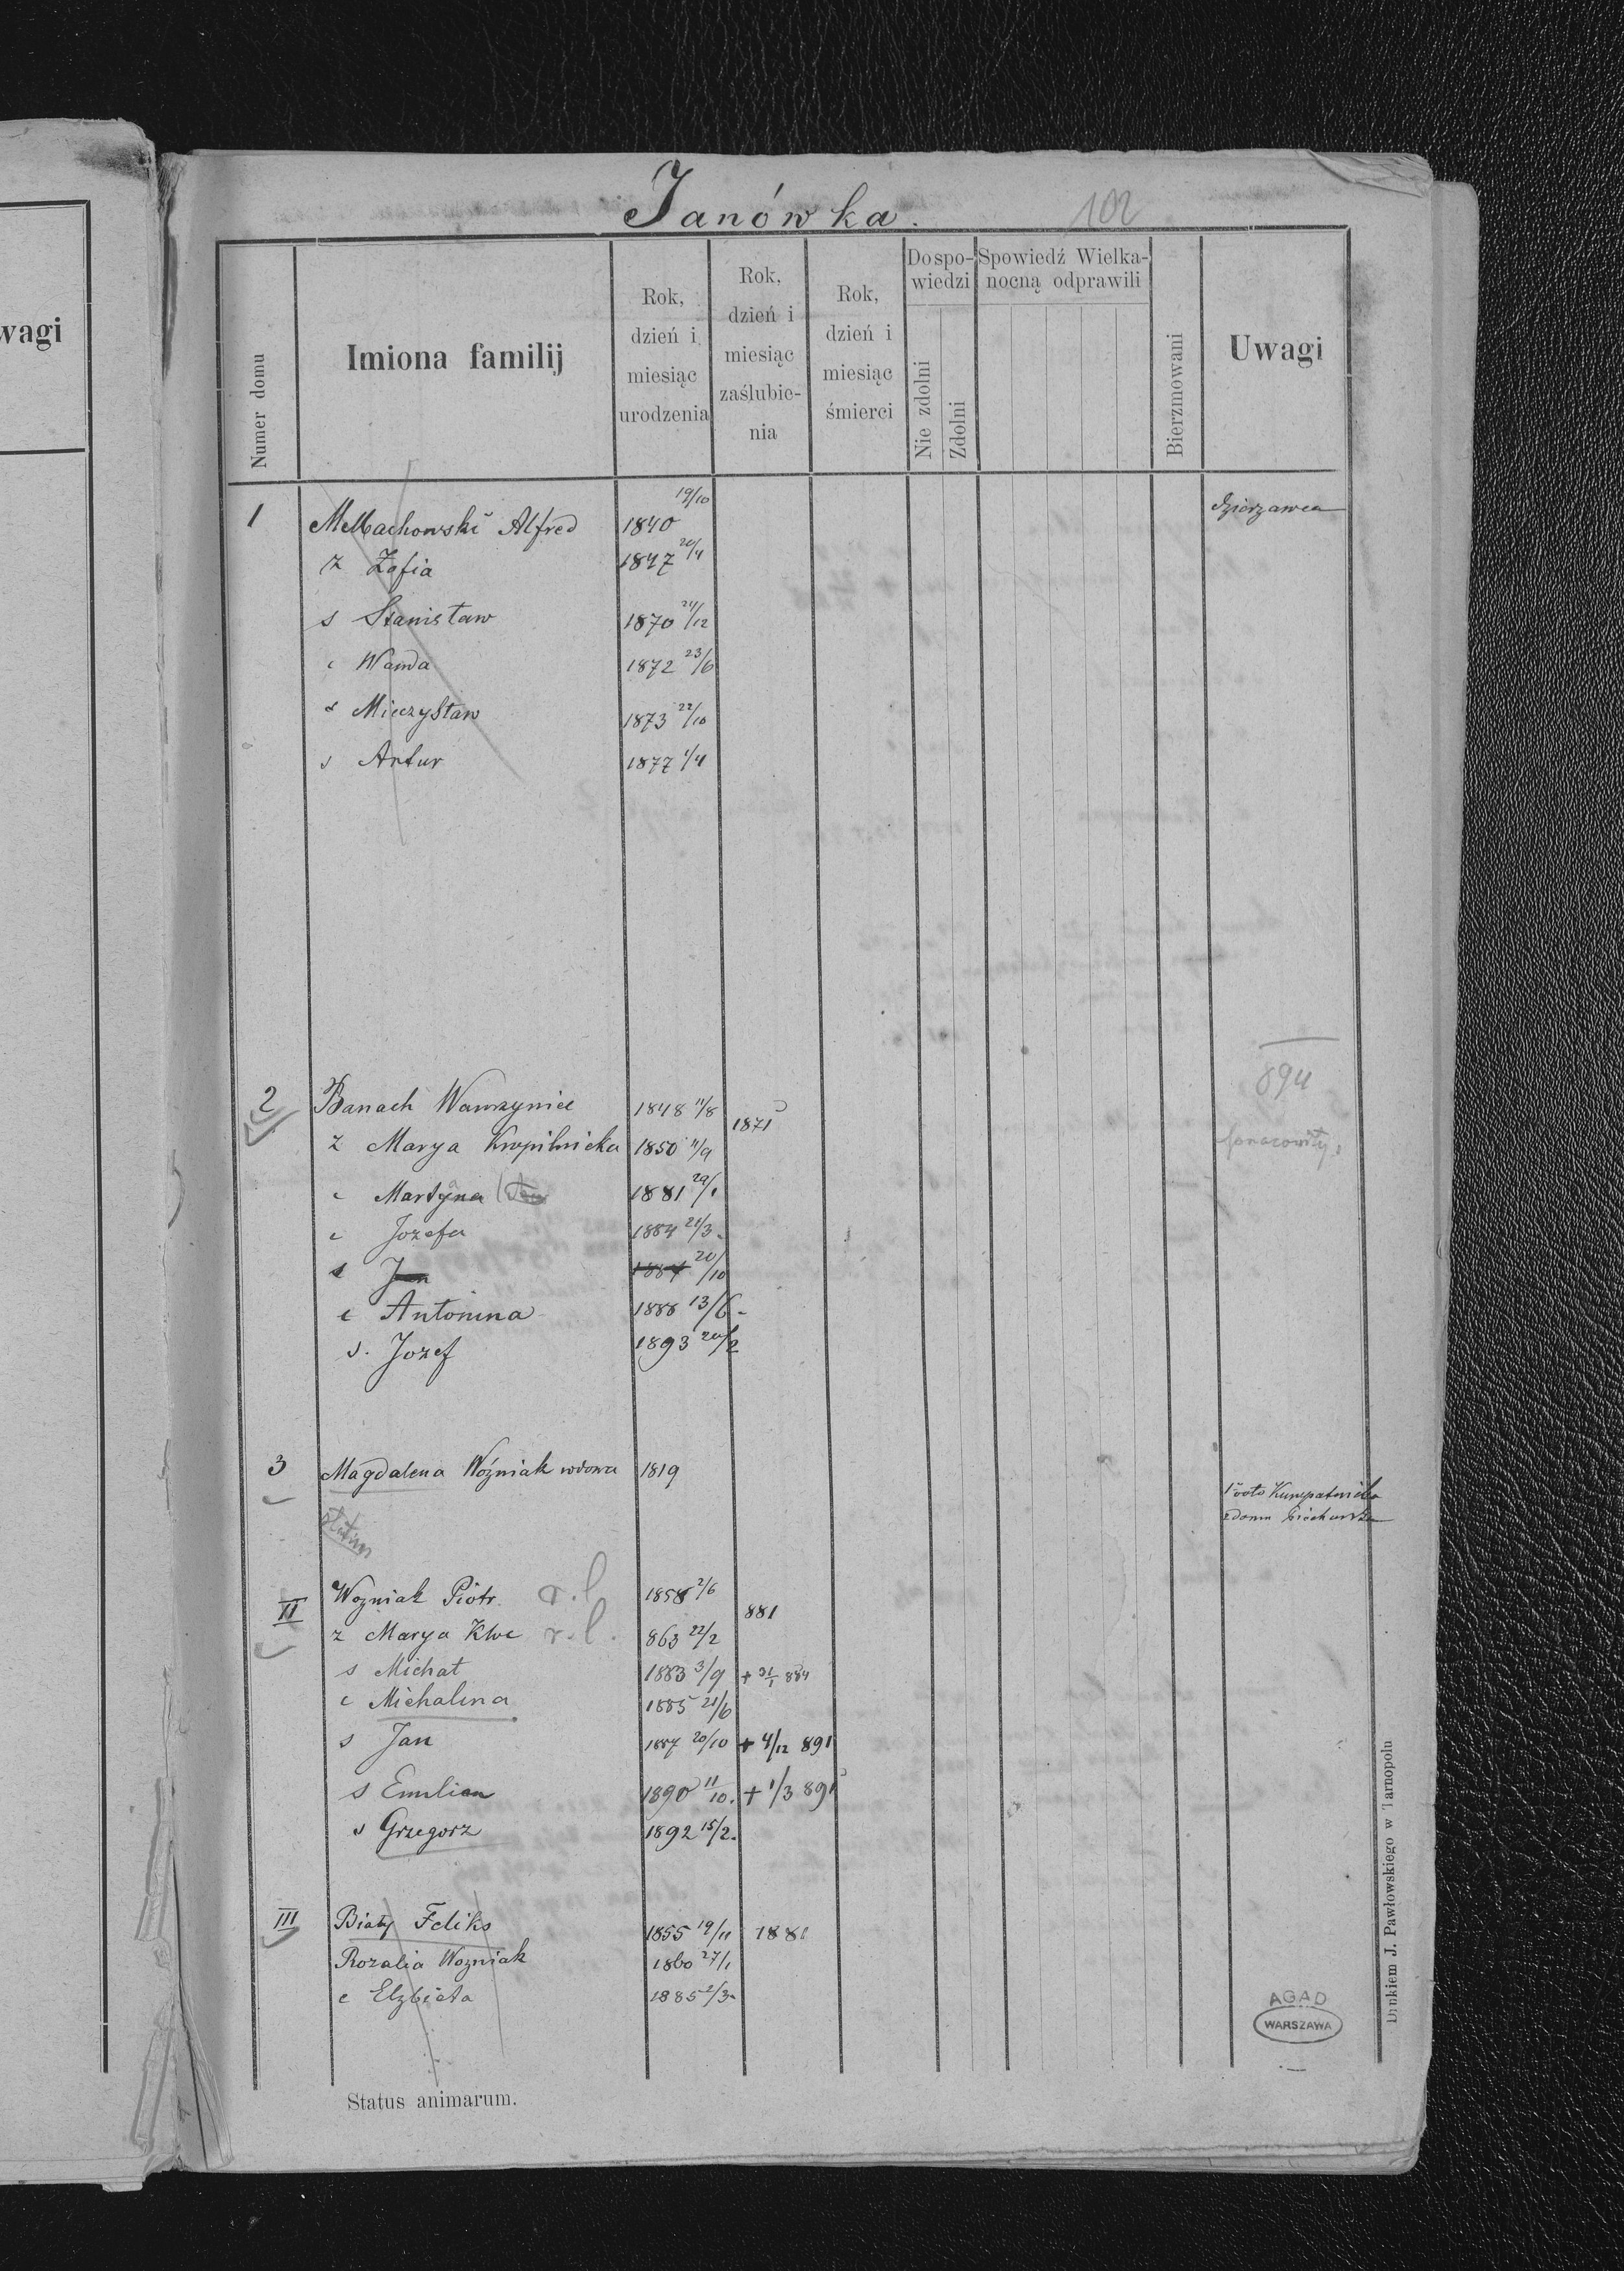 Janówka.
102
wagi
Numer domu
Imiona familij
Rok, dzień i miesiąc urodzenia
Rok, dzień i miesiąc zaślubienia
Rok, dzień i miesiąc śmierci
Do spowiedzi
Nie zdolni
Zdolni
Spowiedź Wielkanocną odprawili
Bierzmowani
Uwagi
1 Machowski Alfred 1840 19/10 dzierzawca
z Zofia 1847 20/4
s Stanisław 1870 21/12
c Wanda 1872 23/6
s Mieczysław 1873 22/10
s Artur 1877 1/4
894
2 Banach Wawrzyniec 1848 11/8 1871
z Marya 1850 11/9
c Martyna 1881 29/1
c Jozefa 1884 21/3
s Jan 1887 20/10
c Antonina 1888 13/6
s. Jozef 1893 20/2
3 Magdalena Woźniak wdowa 1819
1o voto
z domu
II Wozniak Piotr r.l 1858 2/6 881
z Marya Klec r.l. 863 22/2
s Michał 1883 3/9 + 31/1 884
c Michalina 1885 21/6
s Jan 1887 20/10 + 4/12 891
s Emilian 1890 11/10. + 1/3 891
s Grzegorz 1892 15/2.
III Biały Feliks 1855 19/11 1881
Rozalia Wozniak 1860 27/1
c Elzbieta 1885 2/3
AGAD
WARSZAWA
Status animarum.
Drukiem J. Pawłowskiego w Tarnopolu